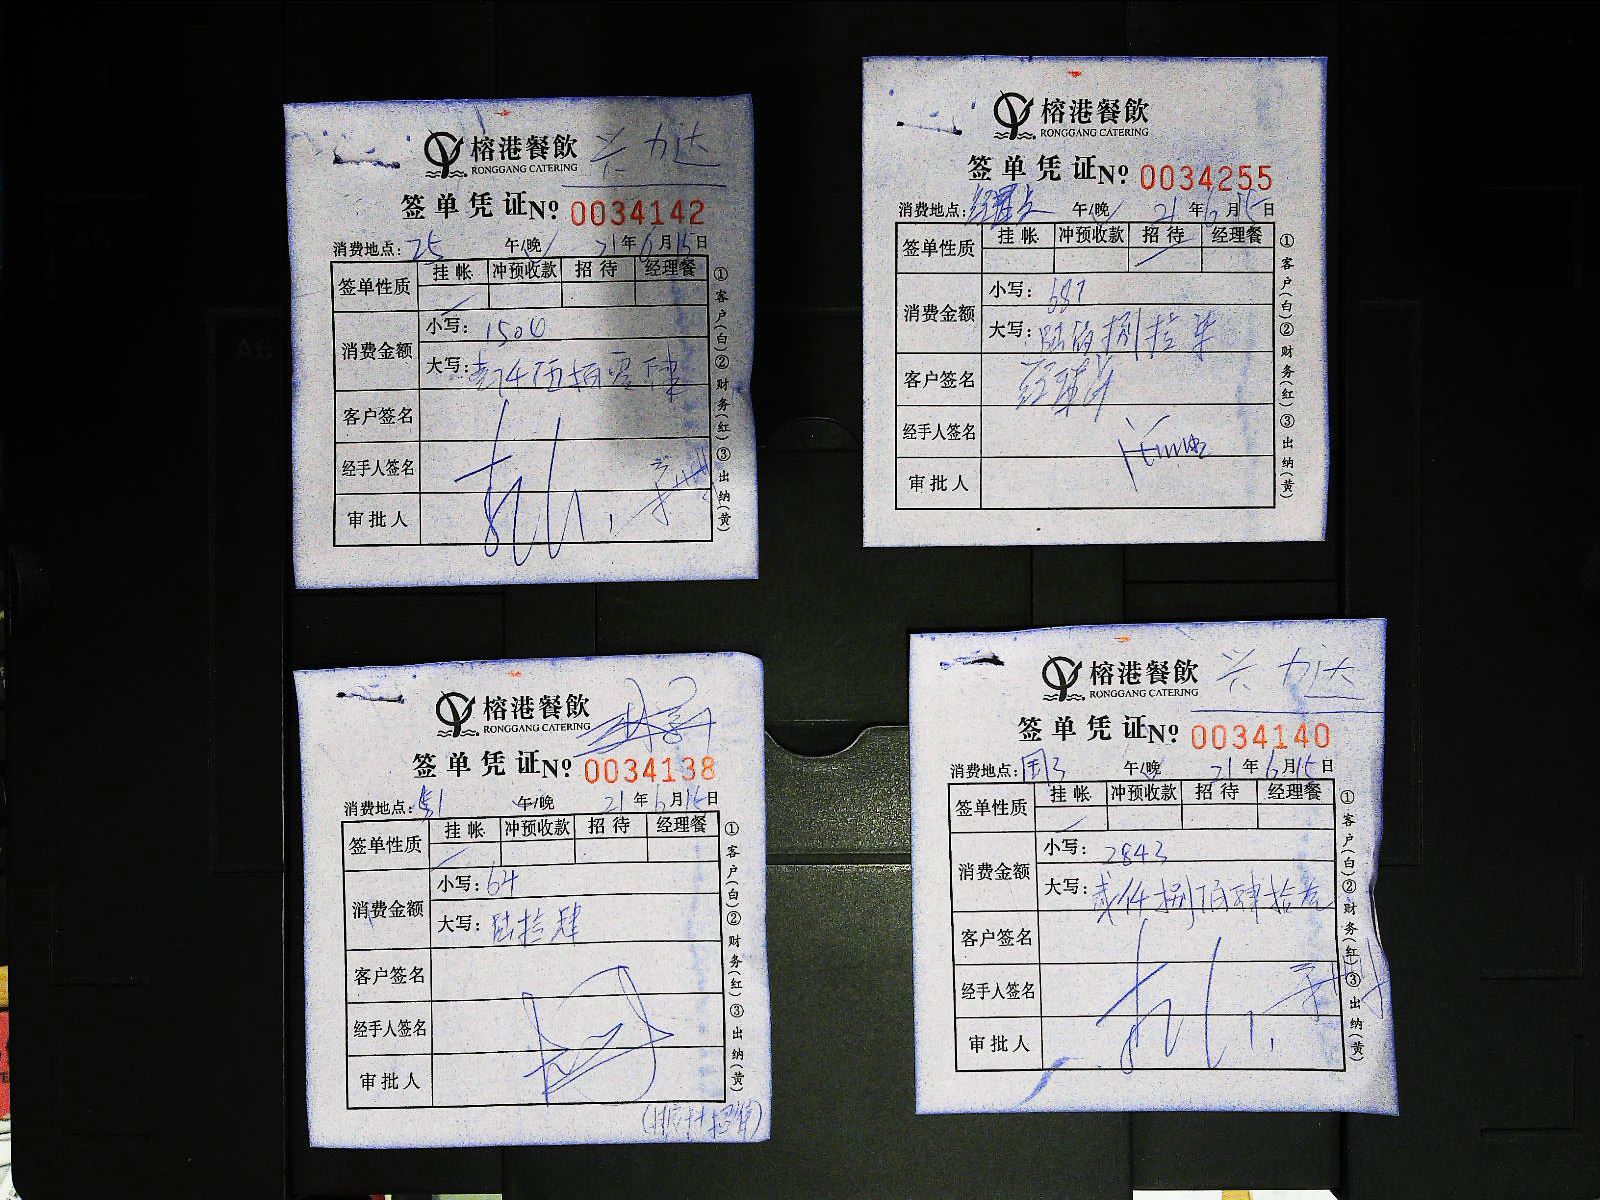 榕港餐飲 兴力达
RONGGANG CATERING
签单凭证 № 0034142
消费地点: 25 午/晚 21年6月15日
签单性质 挂帐 冲预收款 招待 经理餐
消费金额 小写: 1504
大写: 壹仟伍佰零肆
客户签名
经手人签名
审批人
①客户(白)②财务(红)③出纳(黄)
榕港餐飲
RONGGANG CATERING
签单凭证 № 0034255
消费地点: 午/晚 21年6月15日
签单性质 挂帐 冲预收款 招待 经理餐
消费金额 小写: 687
大写: 陆佰捌拾柒
客户签名
经手人签名
审批人
①客户(白)②财务(红)③出纳(黄)
榕港餐飲
RONGGANG CATERING
签单凭证 № 0034138
消费地点: 午/晚 21年6月15日
签单性质 挂帐 冲预收款 招待 经理餐
消费金额 小写: 64
大写: 陆拾肆
客户签名
经手人签名
审批人
①客户(白)②财务(红)③出纳(黄)
榕港餐飲 兴力达
RONGGANG CATERING
签单凭证 № 0034140
消费地点: 午/晚 21年6月15日
签单性质 挂帐 冲预收款 招待 经理餐
消费金额 小写: 2843
大写: 贰仟捌佰肆拾叁
客户签名
经手人签名
审批人
①客户(白)②财务(红)③出纳(黄)